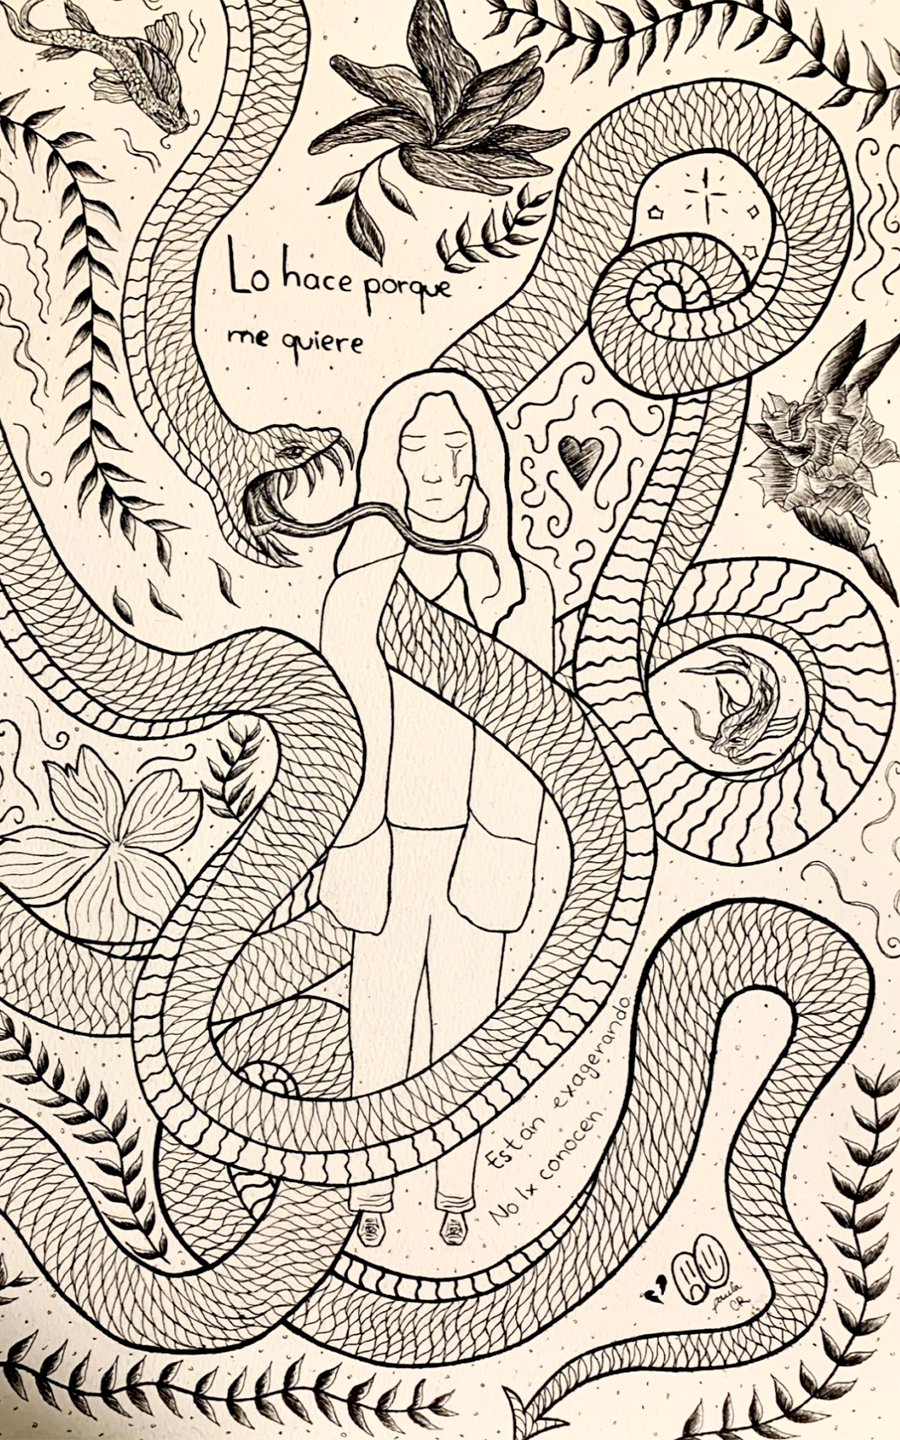 Lo hace porque
me quiere
Están exagerando
No lx conocen.
paula
CR